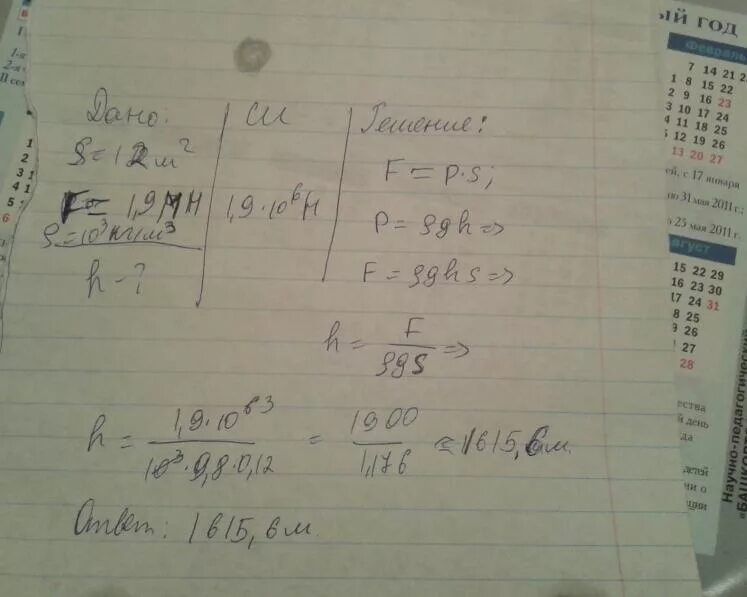 Дано:
S = 12 м²
F = 1,9 МН
ρ = 10³ кг/м³
h - ?
СИ
1,9·10⁶ Н
Решение:
F = P·S;
P = ρgh =>
F = ρghs =>
h = F/ρgS =>
h = 1,9·10⁶ ³/10³·9,8·0,12 = 1900/1,176 ≈ 1615,6 м.
Ответ: 1615,6 м.
ЫЙ ГОД
Феврал
7 14 21
1 8 15 22
2 9 16 23
3 10 17 24
4 11 18 25
5 12 19 26
13 20 27
ей, с 17 января
по 31 мая 2011 г.;
25 мая 2011 г.
август
15 22 29
16 23 30
17 24 31
18 25
9 26
27
28
ества
й день
да
детей
ми о
ции
Научно-педагогичес
«БАШКОР
1-я
2-я
II сем
1
2
3
4
5
6